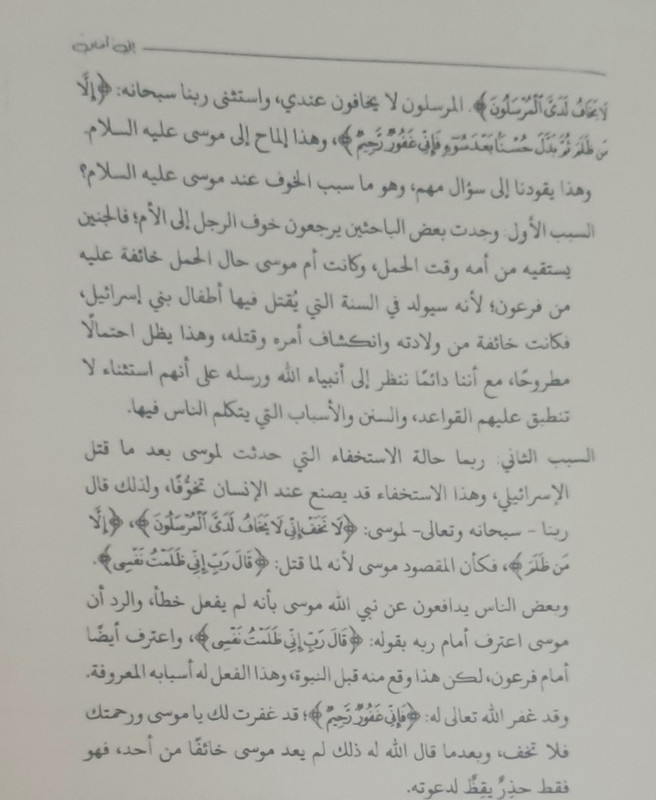 لَا يَخَافُ لَدَىَّ ٱلْمُرْسَلُونَ﴾. المرسلون لا يخافون عندي، واستثنى ربنا سبحانه: ﴿إِلَّا
مَن ظَلَمَ ثُمَّ بَدَّلَ حُسْنَۢا بَعْدَ سُوٓءٍ فَإِنِّى غَفُورٌ رَّحِيمٌ﴾، وهذا إلماح إلى موسى عليه السلام.
وهذا يقودنا إلى سؤال مهم، وهو ما سبب الخوف عند موسى عليه السلام؟
السبب الأول: وجدت بعض الباحثين يرجعون خوف الرجل إلى الأم؛ فالجنين
يستقيه من أمه وقت الحمل، وكانت أم موسى حال الحمل خائفة عليه
من فرعون؛ لأنه سيولد في السنة التي يُقتل فيها أطفال بني إسرائيل،
فكانت خائفة من ولادته وانكشاف أمره وقتله، وهذا يظل احتمالًا
مطروحًا، مع أننا دائمًا ننظر إلى أنبياء الله ورسله على أنهم استثناء لا
تنطبق عليهم القواعد، والسنن والأسباب التي يتكلم الناس فيها.
السبب الثاني: ربما حالة الاستخفاء التي حدثت لموسى بعد ما قتل
الإسرائيلي، وهذا الاستخفاء قد يصنع عند الإنسان تخوُّفًا، ولذلك قال
ربنا - سبحانه وتعالى- لموسى: ﴿لَا تَخَفْ إِنِّى لَا يَخَافُ لَدَىَّ ٱلْمُرْسَلُونَ﴾، ﴿إِلَّا
مَن ظَلَمَ﴾، فكأن المقصود موسى لأنه لما قتل: ﴿قَالَ رَبِّ إِنِّى ظَلَمْتُ نَفْسِى﴾.
وبعض الناس يدافعون عن نبي الله موسى بأنه لم يفعل خطأ، والرد أن
موسى اعترف أمام ربه بقوله: ﴿قَالَ رَبِّ إِنِّى ظَلَمْتُ نَفْسِى﴾، واعترف أيضًا
أمام فرعون، لكن هذا وقع منه قبل النبوة، وهذا الفعل له أسبابه المعروفة.
وقد غفر الله تعالى له: ﴿فَإِنِّى غَفُورٌ رَّحِيمٌ﴾؛ قد غفرت لك يا موسى ورحمتك
فلا تخف، وبعدما قال الله له ذلك لم يعد موسى خائفًا من أحد، فهو
فقط حذِرٌ يقِظٌ لدعوته.